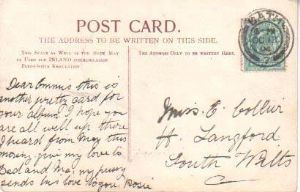 POST CARD.
THE ADDRESS TO BE WRITTEN ON THIS SIDE.
THIS SPACE AS WELL AS THE SIDE MAY
BE USED FOR INLAND COMMUNICATION
POST-OFFICE REGULATION
THE ADDRESS ONLY TO BE WRITTEN HERE.
BATH
Dear Emmie this is
another pretty card for
your album I hope you
are all well up there
I heard from May this
morning give my love to
and
sends his love to you Rosie
Miss E Collier
H. Langford
South Wilts